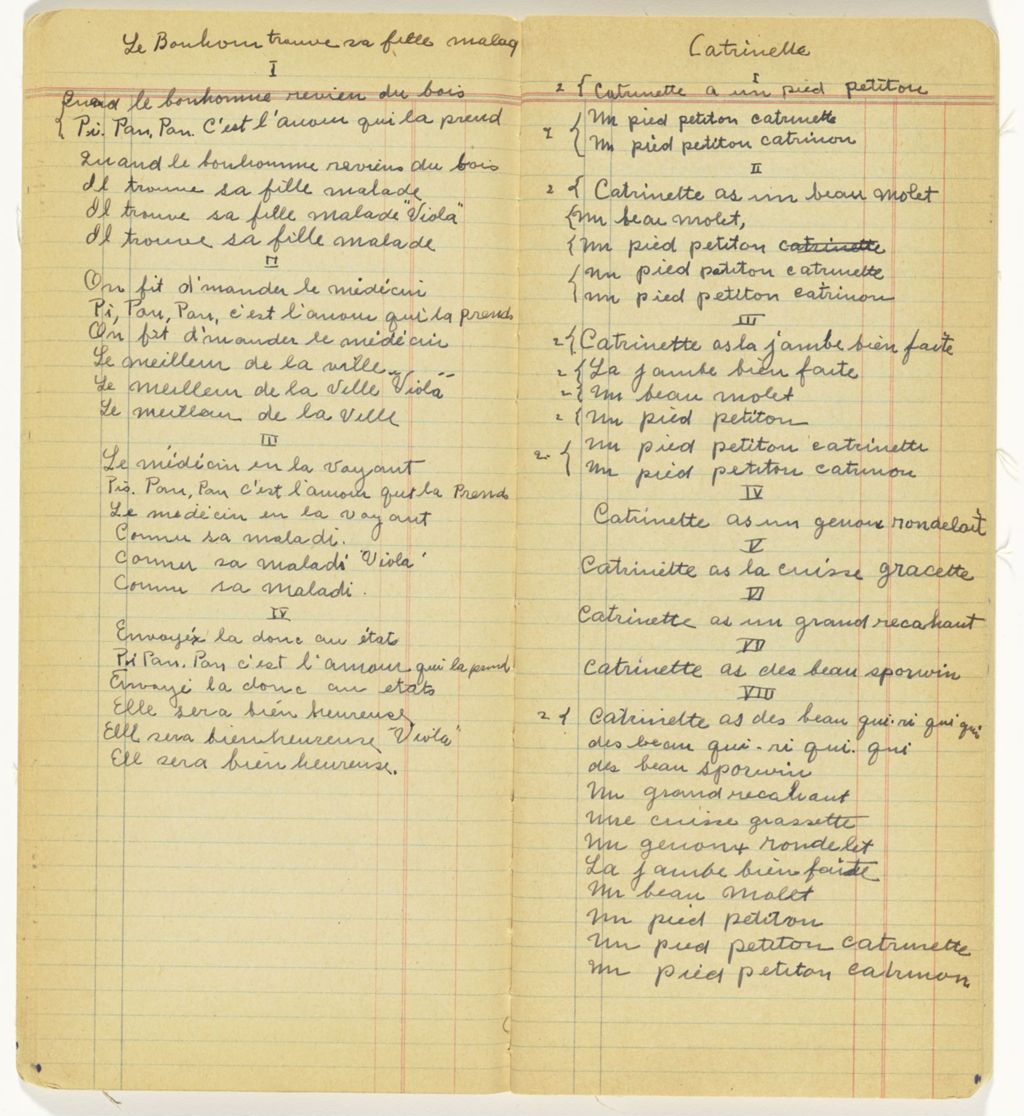 Le Bonhom trouve sa fille malad
I
Quand le bonhomme revien du bois
{ Pi. Pan, Pan. C'est l'amour qui la prend
Quand le bonhomme reviens du bois
Il trouve sa fille malade
Il trouve sa fille malade "Viola"
Il trouve sa fille malade
II
On fit d'mander le médécin
Pi, Pan, Pan, c'est l'amour qui la prends
On fit d'mander le médécin
Le meilleur de la ville
Le meilleur de la Ville "Viola"
Le meilleur de la Ville
III
Le médécin en la voyant
Pis. Pan, Pan C'est l'amour qui la Prends
Le médécin en la voyant
Connu sa maladi.
Connu sa maladi "Viola"
Connu sa maladi.
IV
Envoyéx la donc au état
Pi Pan. Pan c'est l'amour qui la prend.
Envoyé la donc au états
Elle sera bién heureuse,
Elll sera bien heureuse "Viola"
Ell sera bien heureuse.
Catrinette
I
2 { Catrinette a un pied petiton
2 { Un pied petiton catrinette
Un pied petiton catrinon
II
2 { Catrinette as un beau molet
{ Un beau molet,
{ Un pied petiton catrinette
{ Un pied petiton catrinette
Un pied petiton catrinon
III
2 { Catrinette as la jambe bién faite
2 { La jambe bien faite
2 { Un beau molet
2 { Un pied petiton
2 { Un pied petiton catrinette
Un pied petiton catrinon
IV
Catrinette as un genoux rondelait
V
Catrinette as la cuisse gracette
VI
Catrinette as un grand recahaut
VII
Catrinette as des beau sporwin
VIII
2 { Catrinette as des beau qui-ri qui qui
des beau qui-ri qui-qui
des beau sporwin
Un grand recahaut
Une cuisse grassette
Un genoux rondelet
La jambe bien faite
Un beau molet
Un pied petiton
Un pied petiton catrinette
Un pied petiton catrinon